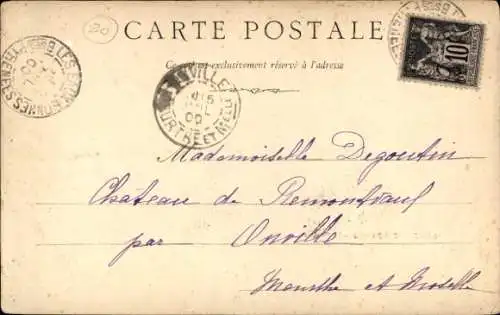 20
CARTE POSTALE
Ce côté est exclusivement réservé à l'adresse
10
VILLE
MEURTHE ET MLLE
00
Mademoiselle Degoutin
Chateau de Remontvaux
par Onville
Meurthe et Moselle